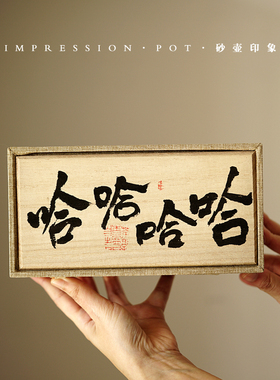 IMPRESSION · POT · 砂壶印象
哈哈哈哈